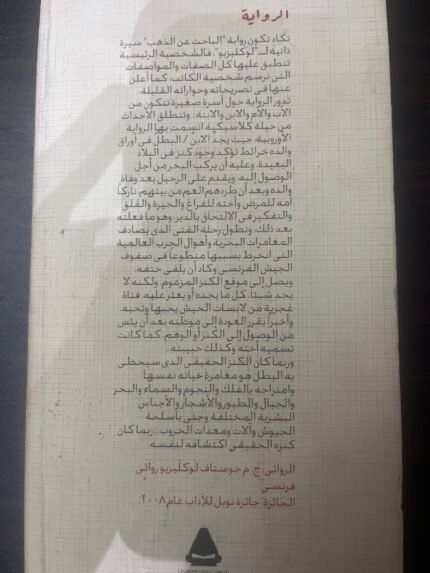 الرواية
تكاد تكون رواية "الباحث عن الذهب" سيرة
ذاتية لـ"لوكليزيو"، فالشخصية الرئيسية
تنطبق عليها كل الصفات والمواصفات
التي ترسم شخصية الكاتب، كما أعلن
عنها في تصريحاته وحواراته القليلة.
تدور الرواية حول أسرة صغيرة تتكون من
الأب والأم والابن والابنة. وتنطلق الأحداث
من حيلة كلاسيكية اتسمت بها الرواية
الأوروبية، حيث يجد الابن / البطل في أوراق
والده خرائط تؤكد وجود كنز في البلاد
البعيدة، وعليه أن يركب البحر من أجل
الوصول إليه. ويقدم على الرحيل بعد وفاة
والده وبعد أن طردهم العم من بيتهم، تاركا
أمه للمرض وأخته للفراغ والحيرة والقلق
والتفكير في الالتحاق بالدير، وهو ما فعلته
بعد ذلك. وتطول رحلة الفتى الذي يصادف
المغامرات البحرية وأهوال الحرب العالمية
التي انخرط بسببها متطوعاً في صفوف
الجيش الفرنسي وكاد أن يلقى حتفه.
ويصل إلى موقع الكنز المزعوم، ولكنه لا
يجد شيئا. كل ما يجده أو يعثر عليه، فتاة
غجرية من لابسات الخيش يحبها وتحبه.
وأخيراً يقرر العودة إلى موطنه بعد أن يئس
من الوصول إلى الكنز أو الوهم، كما كانت
تسميه أخته وكذلك حبيبته.
وربما كان الكنز الحقيقي الذي سيحظى
به البطل هو مغامرة حياته نفسها
وامتزاجه بالفلك والنجوم والسماء والبحر
والجبال والطيور والأشجار والأجناس
البشرية المختلفة وحتى بأسلحة
الجيوش وآلات ومعدات الحروب.. ربما كان
كنزه الحقيقي اكتشافه لنفسه.
الروائي: ج. م جوستاف لوكليزيو روائي
فرنسي.
الجائزة: جائزة نوبل للآداب عام ٢٠٠٨